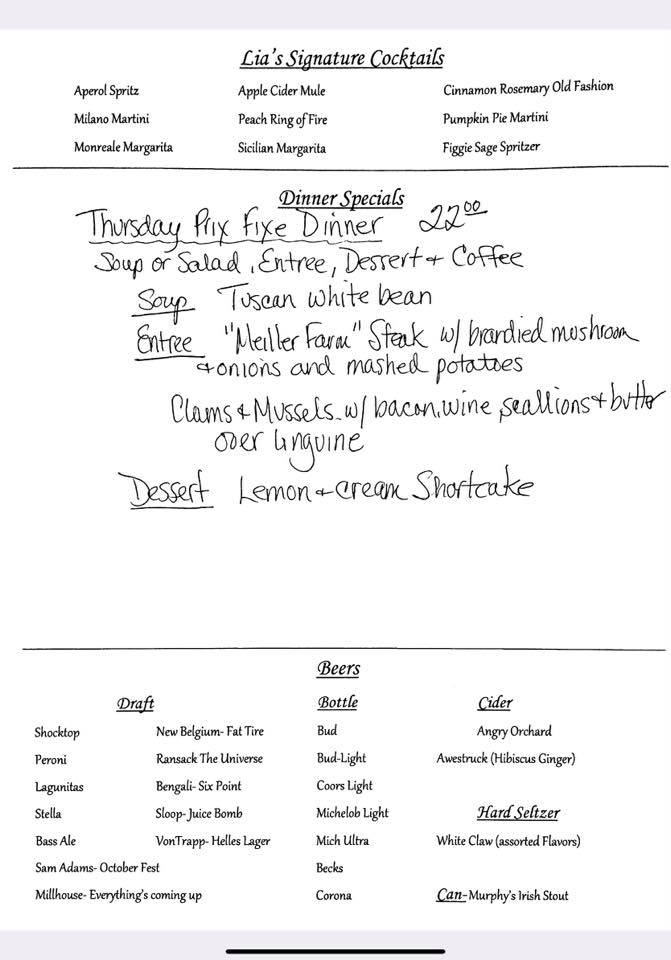 Lia's Signature Cocktails
Aperol Spritz Apple Cider Mule Cinnamon Rosemary Old Fashion
Milano Martini Peach Ring of Fire Pumpkin Pie Martini
Monreale Margarita Sicilian Margarita Figgie Sage Spritzer
Dinner Specials
Thursday Prix Fixe Dinner 22.00
Soup or Salad, Entree, Dessert + Coffee
Soup Tuscan white bean
Entree "Meiller Farm" Steak w/ brandied mushroom
+ onions and mashed potatoes
Clams + Mussels w/ bacon, wine, scallions + butter
over linguine
Dessert Lemon + cream Shortcake
Beers
Draft Bottle Cider
Shocktop New Belgium- Fat Tire Bud Angry Orchard
Peroni Ransack The Universe Bud-Light Awestruck (Hibiscus Ginger)
Lagunitas Bengali- Six Point Coors Light
Stella Sloop- Juice Bomb Michelob Light Hard Seltzer
Bass Ale VonTrapp- Helles Lager Mich Ultra White Claw (assorted Flavors)
Sam Adams- October Fest Becks
Millhouse- Everything's coming up Corona Can-Murphy's Irish Stout